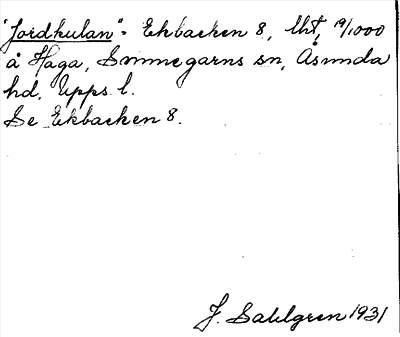 "Jordkulan" = Ekbacken 8, lht, 19/1000
å Haga, Simmegarns sn, Åsunda
hd, Upps l.
Se Ekbacken 8.
J. Sahlgren 1931